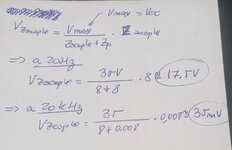 Vmax = Vcc
Vzacople = Vmax / Zacople + Zp · Zacople
⇒ a 20Hz
Vzacople = 35V / 8 + 8 · 8 ≅ 17.5V
⇒ a 20kHz
Vzacople = 35 / 8 + 0.008 · 0.008 ≅ 35mV